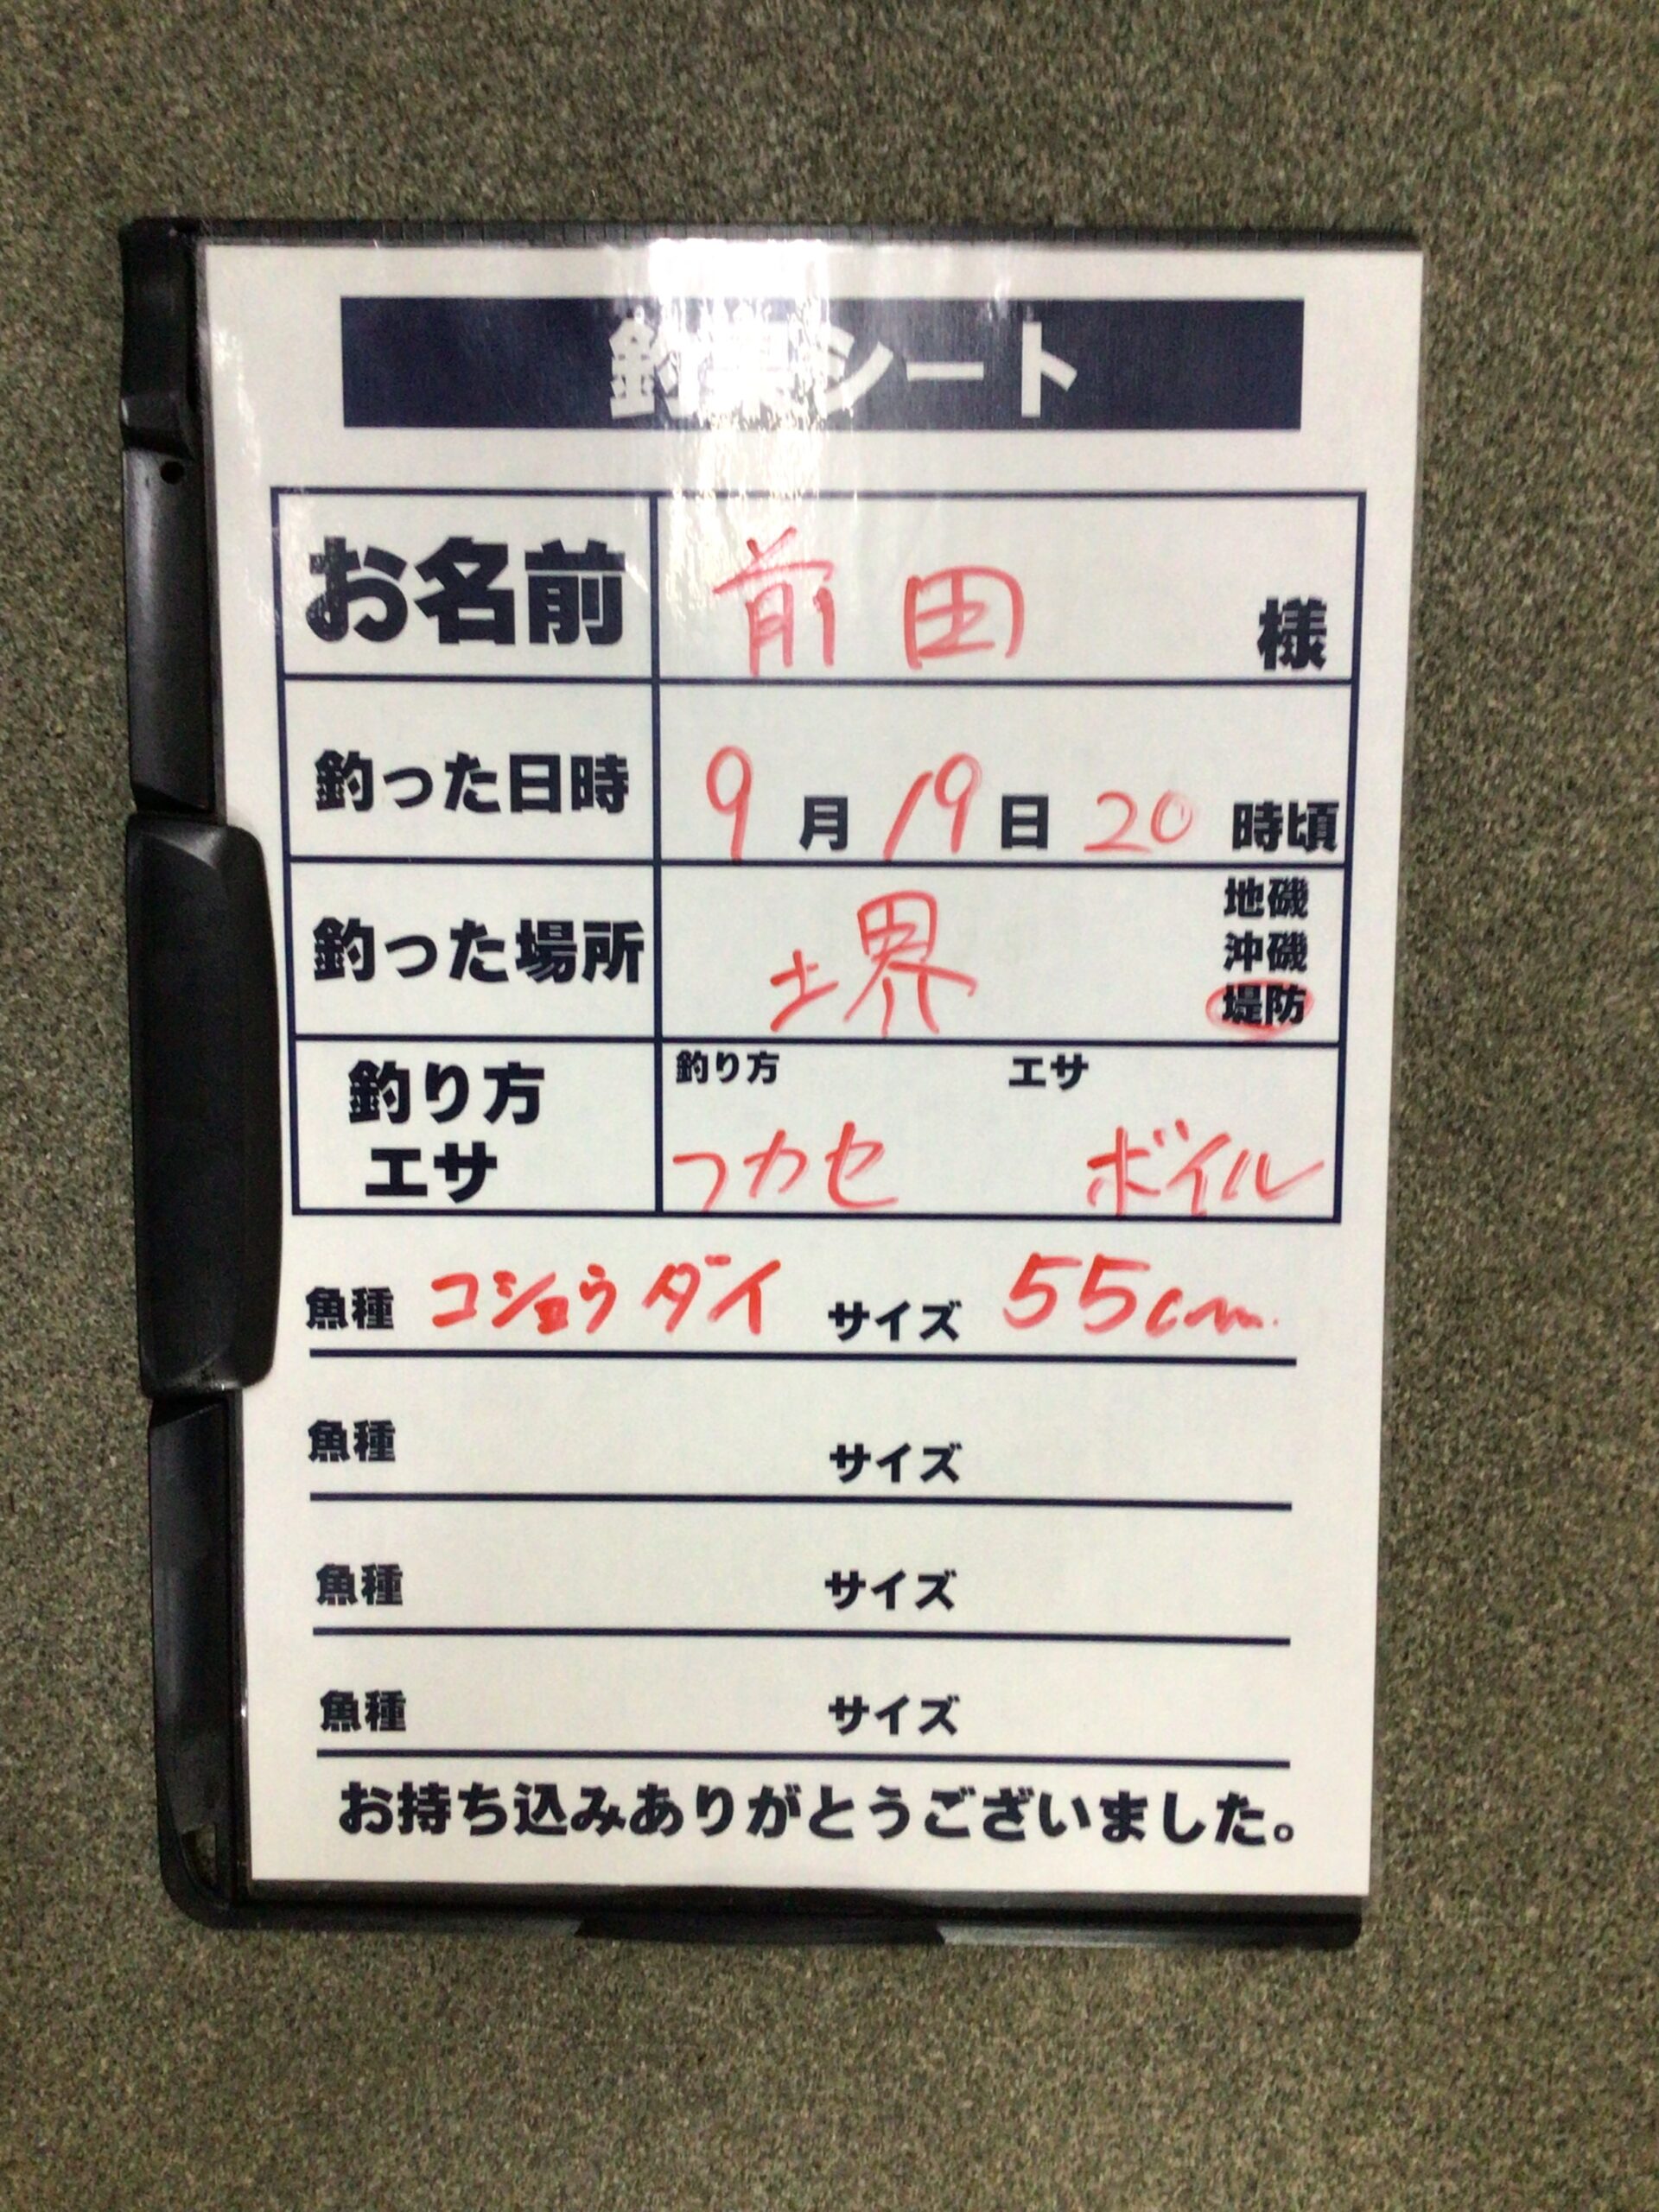 釣果シート
お名前 前田 様
釣った日時 9月19日20時頃
釣った場所 堺 地磯
沖磯
堤防
釣り方 エサ
釣り方
エサ
フカセ ボイル
魚種 コショウダイ サイズ 55cm
魚種 サイズ
魚種 サイズ
魚種 サイズ
お持ち込みありがとうございました。